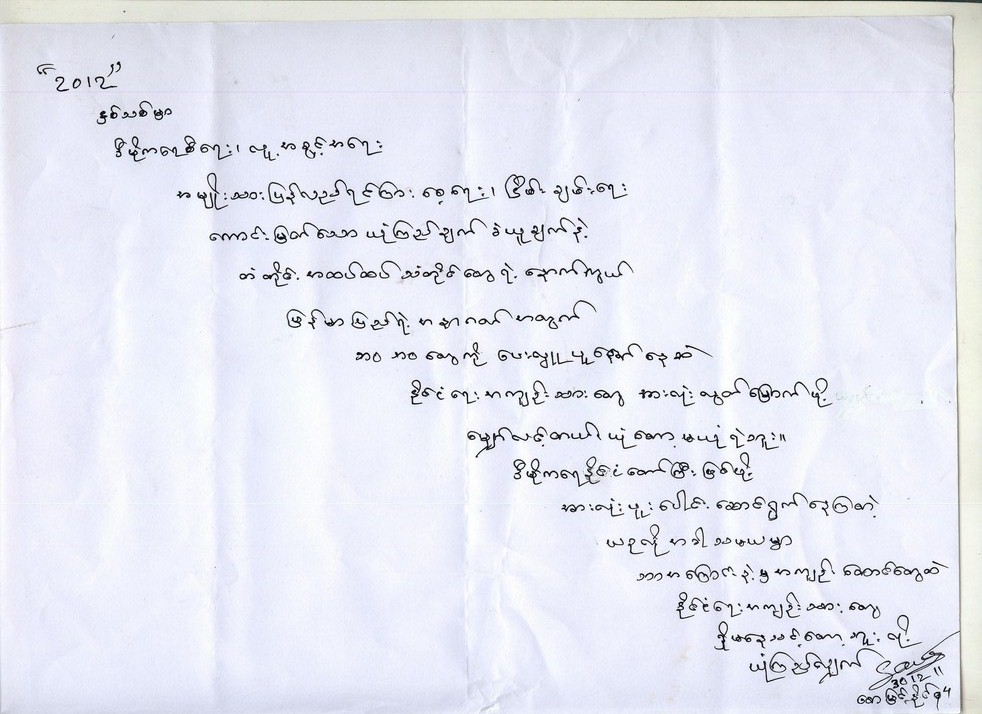 “2012”
နှစ်သစ်မှာ
ဒီမိုကရေစီရေး၊ လူ့အခွင့်အရေး
အမျိုးသားပြန်လည်ရင်ကြားစေ့ရေး၊ ငြိမ်းချမ်းရေး
ကောင်းမြတ်သော ယုံကြည်ချက် ခံယူချက်နဲ့
တံတိုင်း အထပ်ထပ် သံတိုင်တွေရဲ့ နောက်ကွယ်
မြန်မာပြည်ရဲ့ အနာဂတ် အတွက်
ဘဝ ဘဝ တွေကို ပေးလှူ ပူဇော် နေဆဲ
နိုင်ငံရေး အကျဉ်းသားတွေ အားလုံး လွတ်မြောက်ဖို့
မျှော်လင့်တယ်၊ ယုံတော့ မယုံရဲဘူး။
ဒီမိုကရေနိုင်ငံတော်ကြီး ဖြစ်ဖို့
အားလုံး ပူးပေါင်း ဆောင်ရွက် နေကြတဲ့
ယခုလို အခါ သမယမှာ
ဘာအကြောင်းနဲ့မှ အကျဉ်း ထောင်တွေထဲ
နိုင်ငံရေး အကျဉ်းသား တွေ
ရှိမနေသင့်တော့ဘူး လို့
ယုံကြည်လျှက်
2012